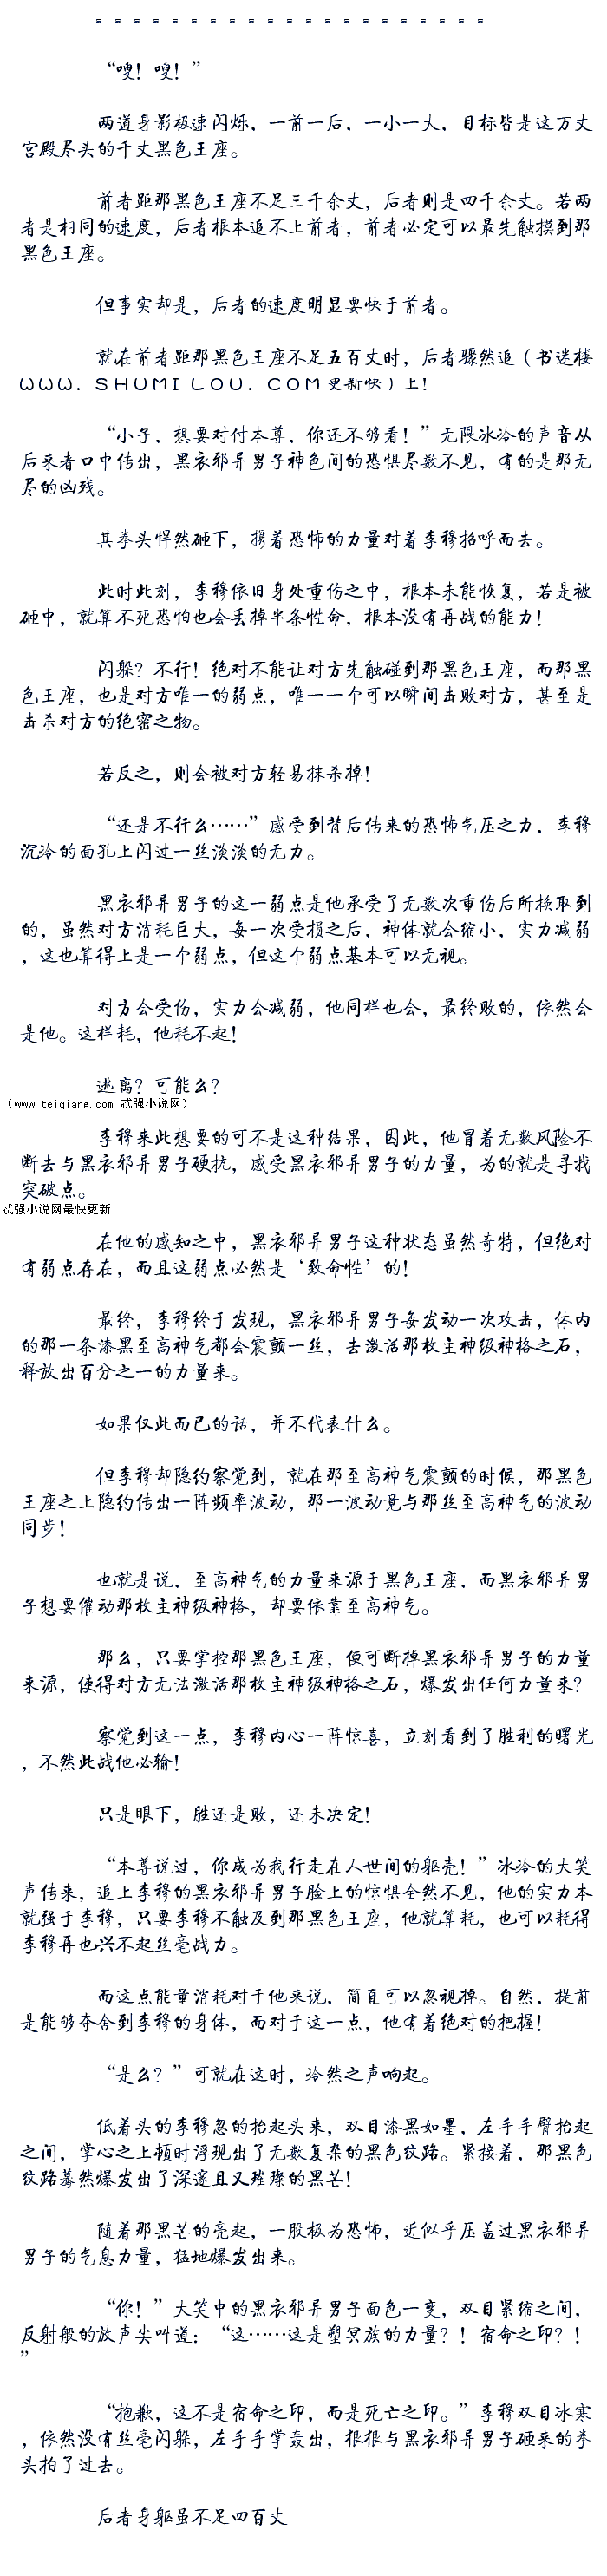 = = = = = = = = = = = = = = = = = = = = =
“嗖！嗖！”
两道身影极速闪烁，一前一后，一小一大，目标皆是这万丈
宫殿尽头的千丈黑色王座。
前者距那黑色王座不足三千余丈，后者则是四千余丈。若两
者是相同的速度，后者根本追不上前者，前者必定可以最先触摸到那
黑色王座。
但事实却是，后者的速度明显要快于前者。
就在前者距那黑色王座不足五百丈时，后者骤然追（书迷楼
WWW．SHUMILOU．COM更新快）上！
“小子，想要对付本尊，你还不够看！”无限冰冷的声音从
后来者口中传出，黑衣邪异男子神色间的恐惧尽数不见，有的是那无
尽的凶残。
其拳头悍然砸下，携着恐怖的力量对着李穆招呼而去。
此时此刻，李穆依旧身处重伤之中，根本未能恢复，若是被
砸中，就算不死恐怕也会丢掉半条性命，根本没有再战的能力！
闪躲？不行！绝对不能让对方先触碰到那黑色王座，而那黑
色王座，也是对方唯一的弱点，唯一一个可以瞬间击败对方，甚至是
击杀对方的绝密之物。
若反之，则会被对方轻易抹杀掉！
“还是不行么……”感受到背后传来的恐怖气压之力，李穆
沉冷的面孔上闪过一丝淡淡的无力。
黑衣邪异男子的这一弱点是他承受了无数次重伤后所换取到
的，虽然对方消耗巨大，每一次受损之后，神体就会缩小，实力减弱
，这也算得上是一个弱点，但这个弱点基本可以无视。
对方会受伤，实力会减弱，他同样也会，最终败的，依然会
是他。这样耗，他耗不起！
逃离？可能么？
（www.teiqiang.com 忒强小说网）
李穆来此想要的可不是这种结果，因此，他冒着无数风险不
断去与黑衣邪异男子硬抗，感受黑衣邪异男子的力量，为的就是寻找
突破点。
忒强小说网最快更新
在他的感知之中，黑衣邪异男子这种状态虽然奇特，但绝对
有弱点存在，而且这弱点必然是‘致命性’的！
最终，李穆终于发现，黑衣邪异男子每发动一次攻击，体内
的那一条漆黑至高神气都会震颤一丝，去激活那枚主神级神格之石，
释放出百分之一的力量来。
如果仅此而已的话，并不代表什么。
但李穆却隐约察觉到，就在那至高神气震颤的时候，那黑色
王座之上隐约传出一阵频率波动，那一波动竟与那丝至高神气的波动
同步！
也就是说，至高神气的力量来源于黑色王座，而黑衣邪异男
子想要催动那枚主神级神格，却要依靠至高神气。
那么，只要掌控那黑色王座，便可断掉黑衣邪异男子的力量
来源，使得对方无法激活那枚主神级神格之石，爆发出任何力量来？
察觉到这一点，李穆内心一阵惊喜，立刻看到了胜利的曙光
，不然此战他必输！
只是眼下，胜还是败，还未决定！
“本尊说过，你成为我行走在人世间的躯壳！”冰冷的大笑
声传来，追上李穆的黑衣邪异男子脸上的惊惧全然不见，他的实力本
就强于李穆，只要李穆不触及到那黑色王座，他就算耗，也可以耗得
李穆再也兴不起丝毫战力。
而这点能量消耗对于他来说，简直可以忽视掉。自然，提前
是能够夺舍到李穆的身体，而对于这一点，他有着绝对的把握！
“是么？”可就在这时，冷然之声响起。
低着头的李穆忽的抬起头来，双目漆黑如墨，左手手臂抬起
之间，掌心之上顿时浮现出了无数复杂的黑色纹路。紧接着，那黑色
纹路蓦然爆发出了深邃且又璀璨的黑芒！
随着那黑芒的亮起，一股极为恐怖，近似乎压盖过黑衣邪异
男子的气息力量，猛地爆发出来。
“你！”大笑中的黑衣邪异男子面色一变，双目紧缩之间，
反射般的放声尖叫道：“这……这是塑冥族的力量？！宿命之印？！
”
“抱歉，这不是宿命之印，而是死亡之印。”李穆双目冰寒
，依然没有丝毫闪躲，左手手掌轰出，狠狠与黑衣邪异男子砸来的拳
头拍了过去。
后者身躯虽不足四百丈